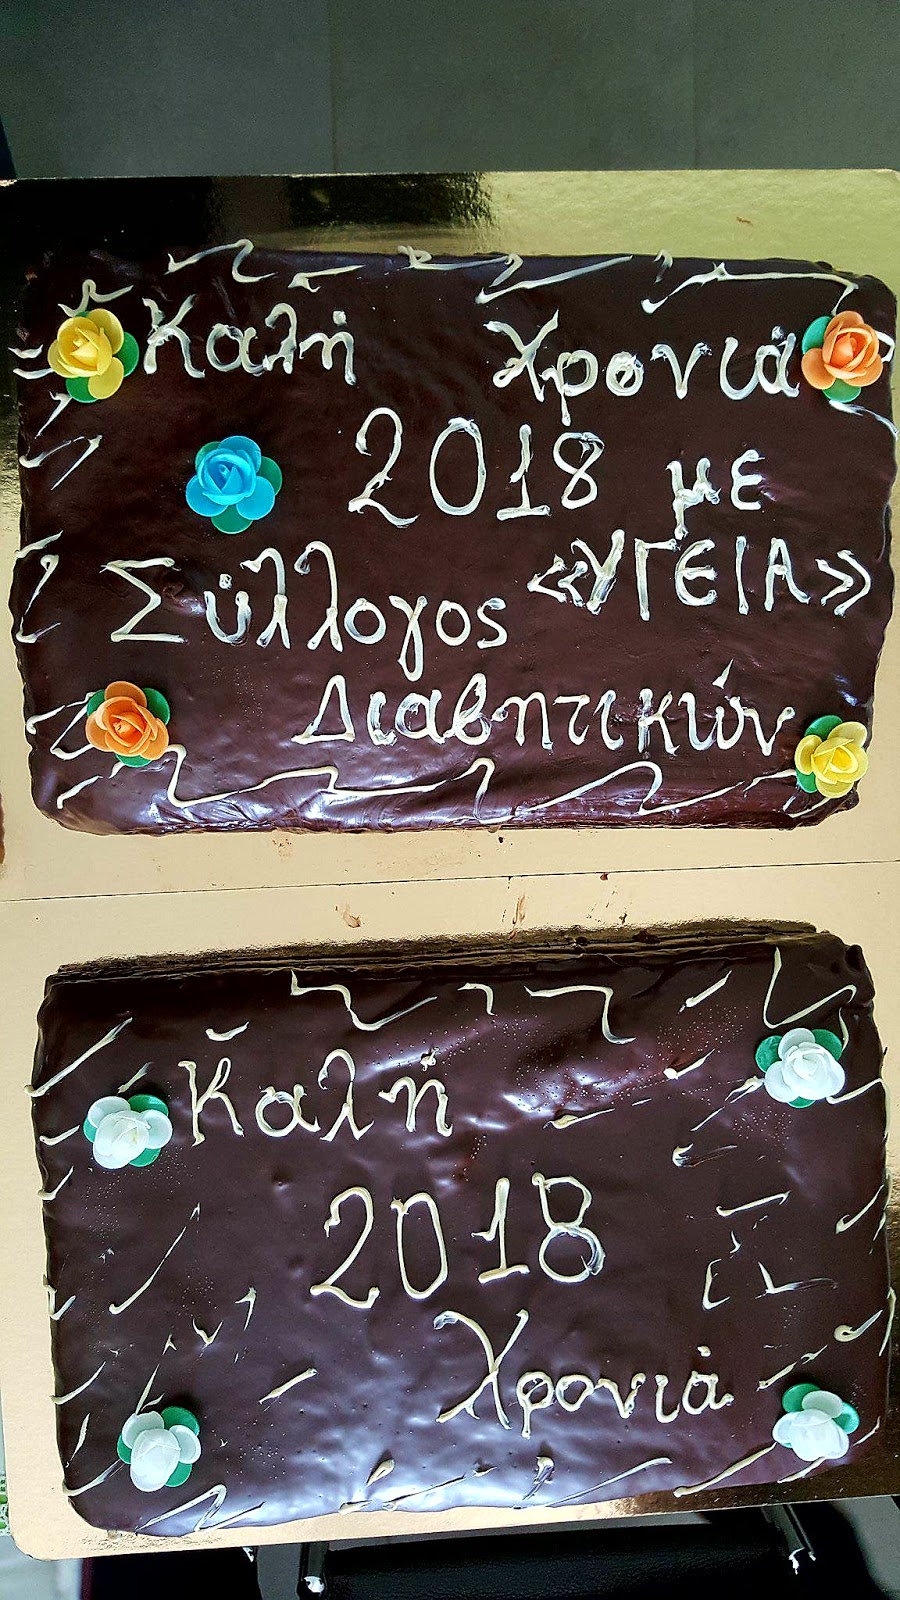 Καλή Χρονιά
2018 με
«ΥΓΕΙΑ»
Σύλλογος
Διαβητικών
Καλή
2018
Χρονιά